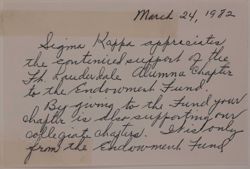 March 24, 1982
Sigma Kappa appreciates
the continued support of the
Ft. Lauderdale Alumnae Chapter
to the Endowment Fund.
By giving to the Fund your
chapter is also supporting our
collegiate chapters. It is only
from the Endowment Fund